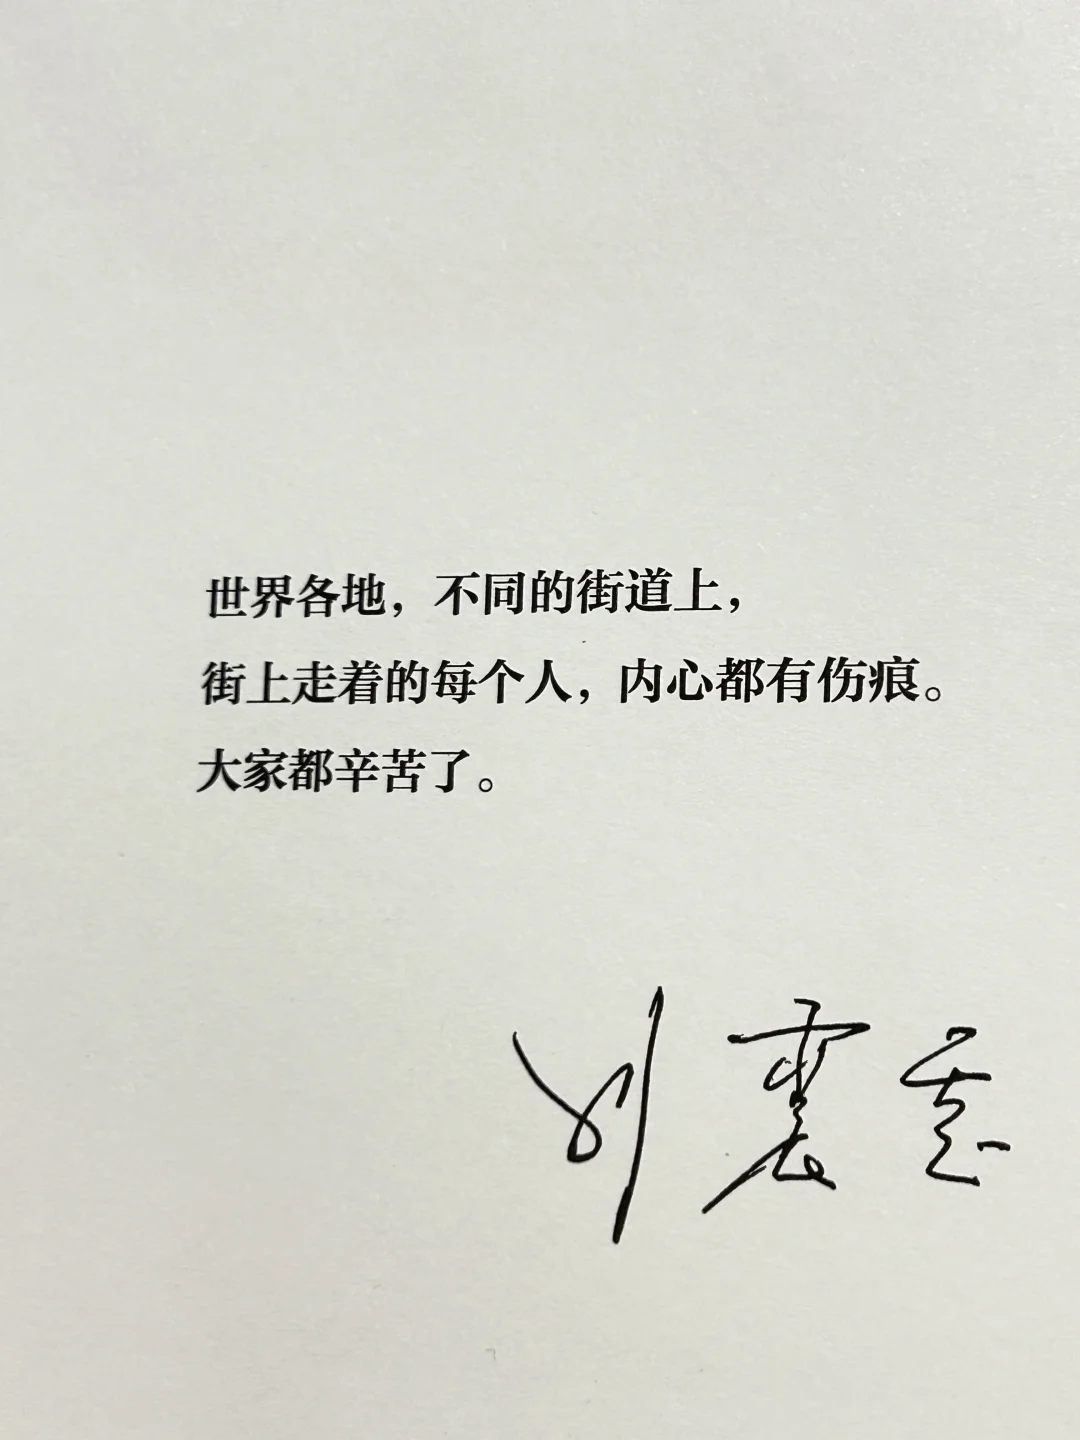 世界各地，不同的街道上，
街上走着的每个人，内心都有伤痕。
大家都辛苦了。
刘震云